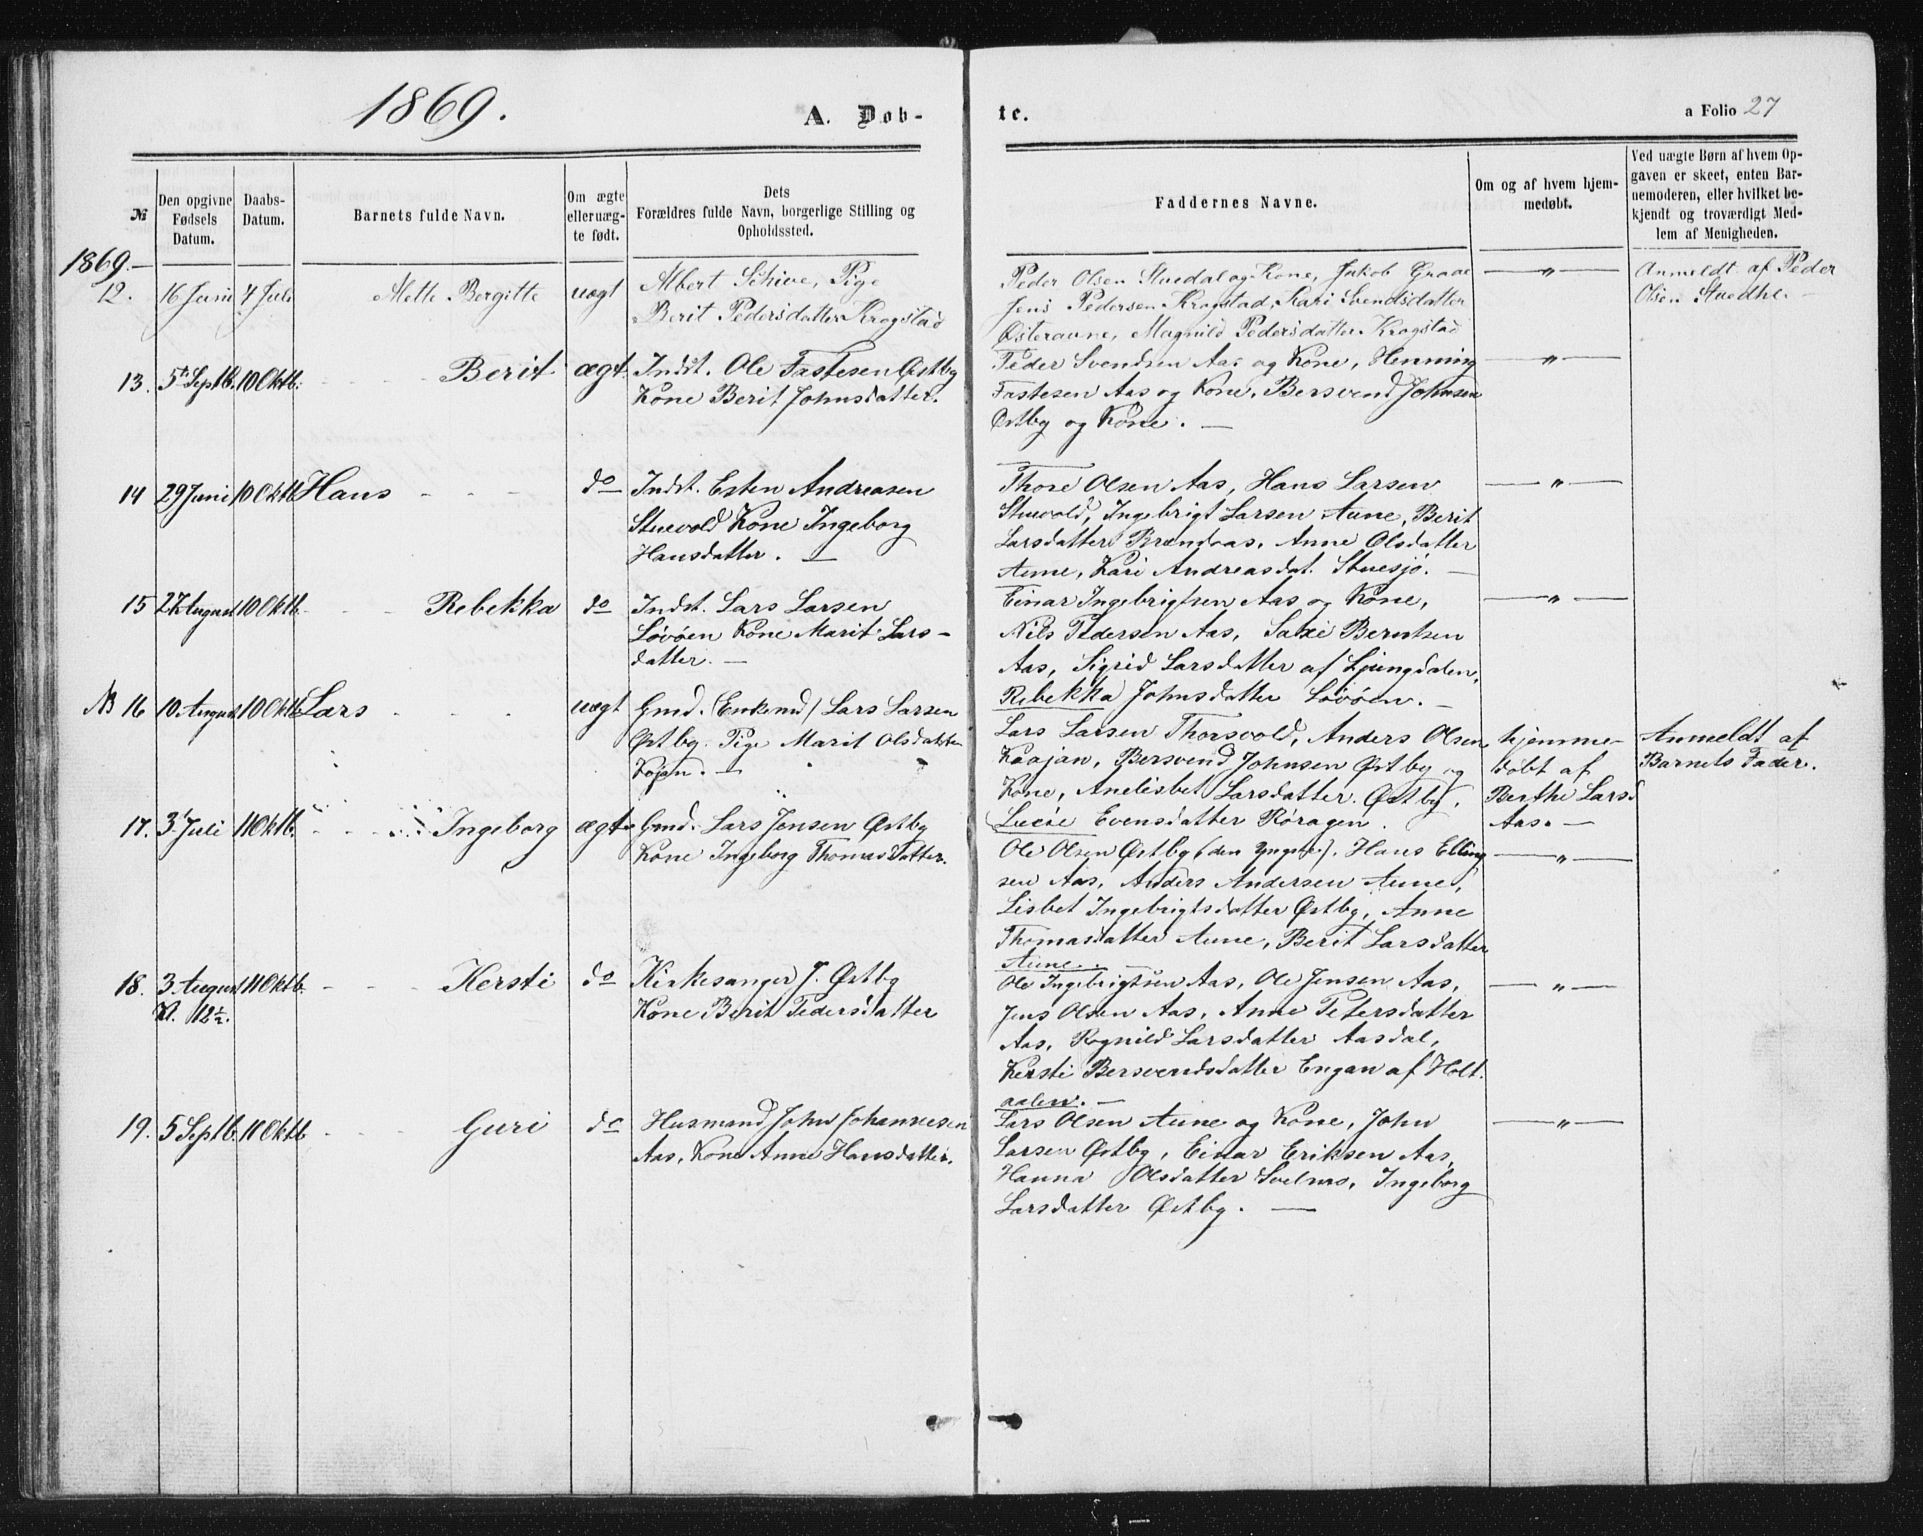 1869.
A. Døb-
te.
a Folio 27
№
Den opgivne Fødsels Datum.
Daabs-Datum.
Barnets fulde Navn.
Om ægte eller uæg-te født.
Dets Forældres fulde Navn, borgerlige Stilling og Opholdssted.
Faddernes Navne.
Om og af hvem hjem-medøbt.
Ved uægte Børn af hvem Op-gaven er skeet, enten Bar-nemoderen, eller hvilket be-kjendt og troværdigt Med-lem af Menigheden.
1869.
12. 16 Juni 4 Juli Mette Bergitte uægt Albert Schive, Pige
Berit Pedersdatter Krogstad
Peder Olsen Stuedal og Kone, Jakob Graae
Jens Pedersen Krogstad, Kari Svendsdatter
Østeraune, Magnild Pedersdatter Krogstad
— " —
Anmeldt af Peder
Olsen Stuedhl. -
13. 5 Septb. 10 Oktb. Berit ægt Indst. Ole Fastesen Østby
Kone Berit Johnsdatter.
Peder Svendsen Aas og Kone, Henning
Fastesen Aas og Kone, Bersvend Johnsen
Østby og Kone. —
— " —
14 29 Juni 10 Oktb Hans - - - do Indst. Esten Andreasen
Stuevold Kone Ingeborg
Hansdatter. —
Thore Olsen Aas, Hans Larsen
Stuevold, Ingebrigt Larsen Aune, Berit
Larsdatter Brændaas, Anne Olsdatter
Aune, Kari Andreasdat. Stuesjø. —
— " —
15 27 August 10 Oktb. - - Rebekka do Indst. Lars Larsen
Løvøen Kone Marit Lars-
datter. —
Einar Ingebrigtsen Aas og Kone,
Nils Pedersen Aas, Saxe Berntsen
Aas, Sigrid Larsdatter af Ljungdalen,
Rebekka Johnsdatter Løvøen. —
— " —
NB 16 10 August 10 Oktb Lars - - - uægt Gmd. (Enkemd) Lars Larsen
Østby. Pige Marit Olsdatter
Kojan. —
Lars Larsen Thorsvold, Anders Olsen
Kaajan, Bersvend Johnsen Østby og
Kone, Anelisbet Larsdatter Østby,
Lucie Evensdatter Røragen.
hjemme-
døbt af
Berthe Larsd
Aas. —
Anmeldt af
Barnets Fader.
17. 3 Juli 11 Oktb. - - Ingeborg ægte Gmd. Lars Jensen Østby
Kone Ingeborg Thomasdatter.
Ole Olsen Østby (den Yngre), Hans Elling
sen Aas, Anders Andersen Aune,
Lisbet Ingebrigtsdatter Østby, Anne
Thomasdatter Aune, Berit Larsdatter
Aune. —
— " —
18. 3 August 11 Oktb. - - - Kersti do Kirkesanger J. Østby
Kl. 12½. Kone Berit Pedersdatter
Ole Ingebrigtsen Aas, Ole Jensen Aas,
Jens Olsen Aas, Anne Petersdatter
Aas, Ragnild Larsdatter Aasdal,
Kersti Bersvendsdatter Engan af Holt-
aalen. —
— " —
19. 5 Septb. 11 Oktb - - - Guri do Husmand John Johannesen
Aas, Kone Anne Hansdatter.
Lars Olsen Aune og Kone, John
Larsen Østby, Einar Eriksen Aas,
Hanna Olsdatter Ingeborg
Larsdatter Østby. —
— " —